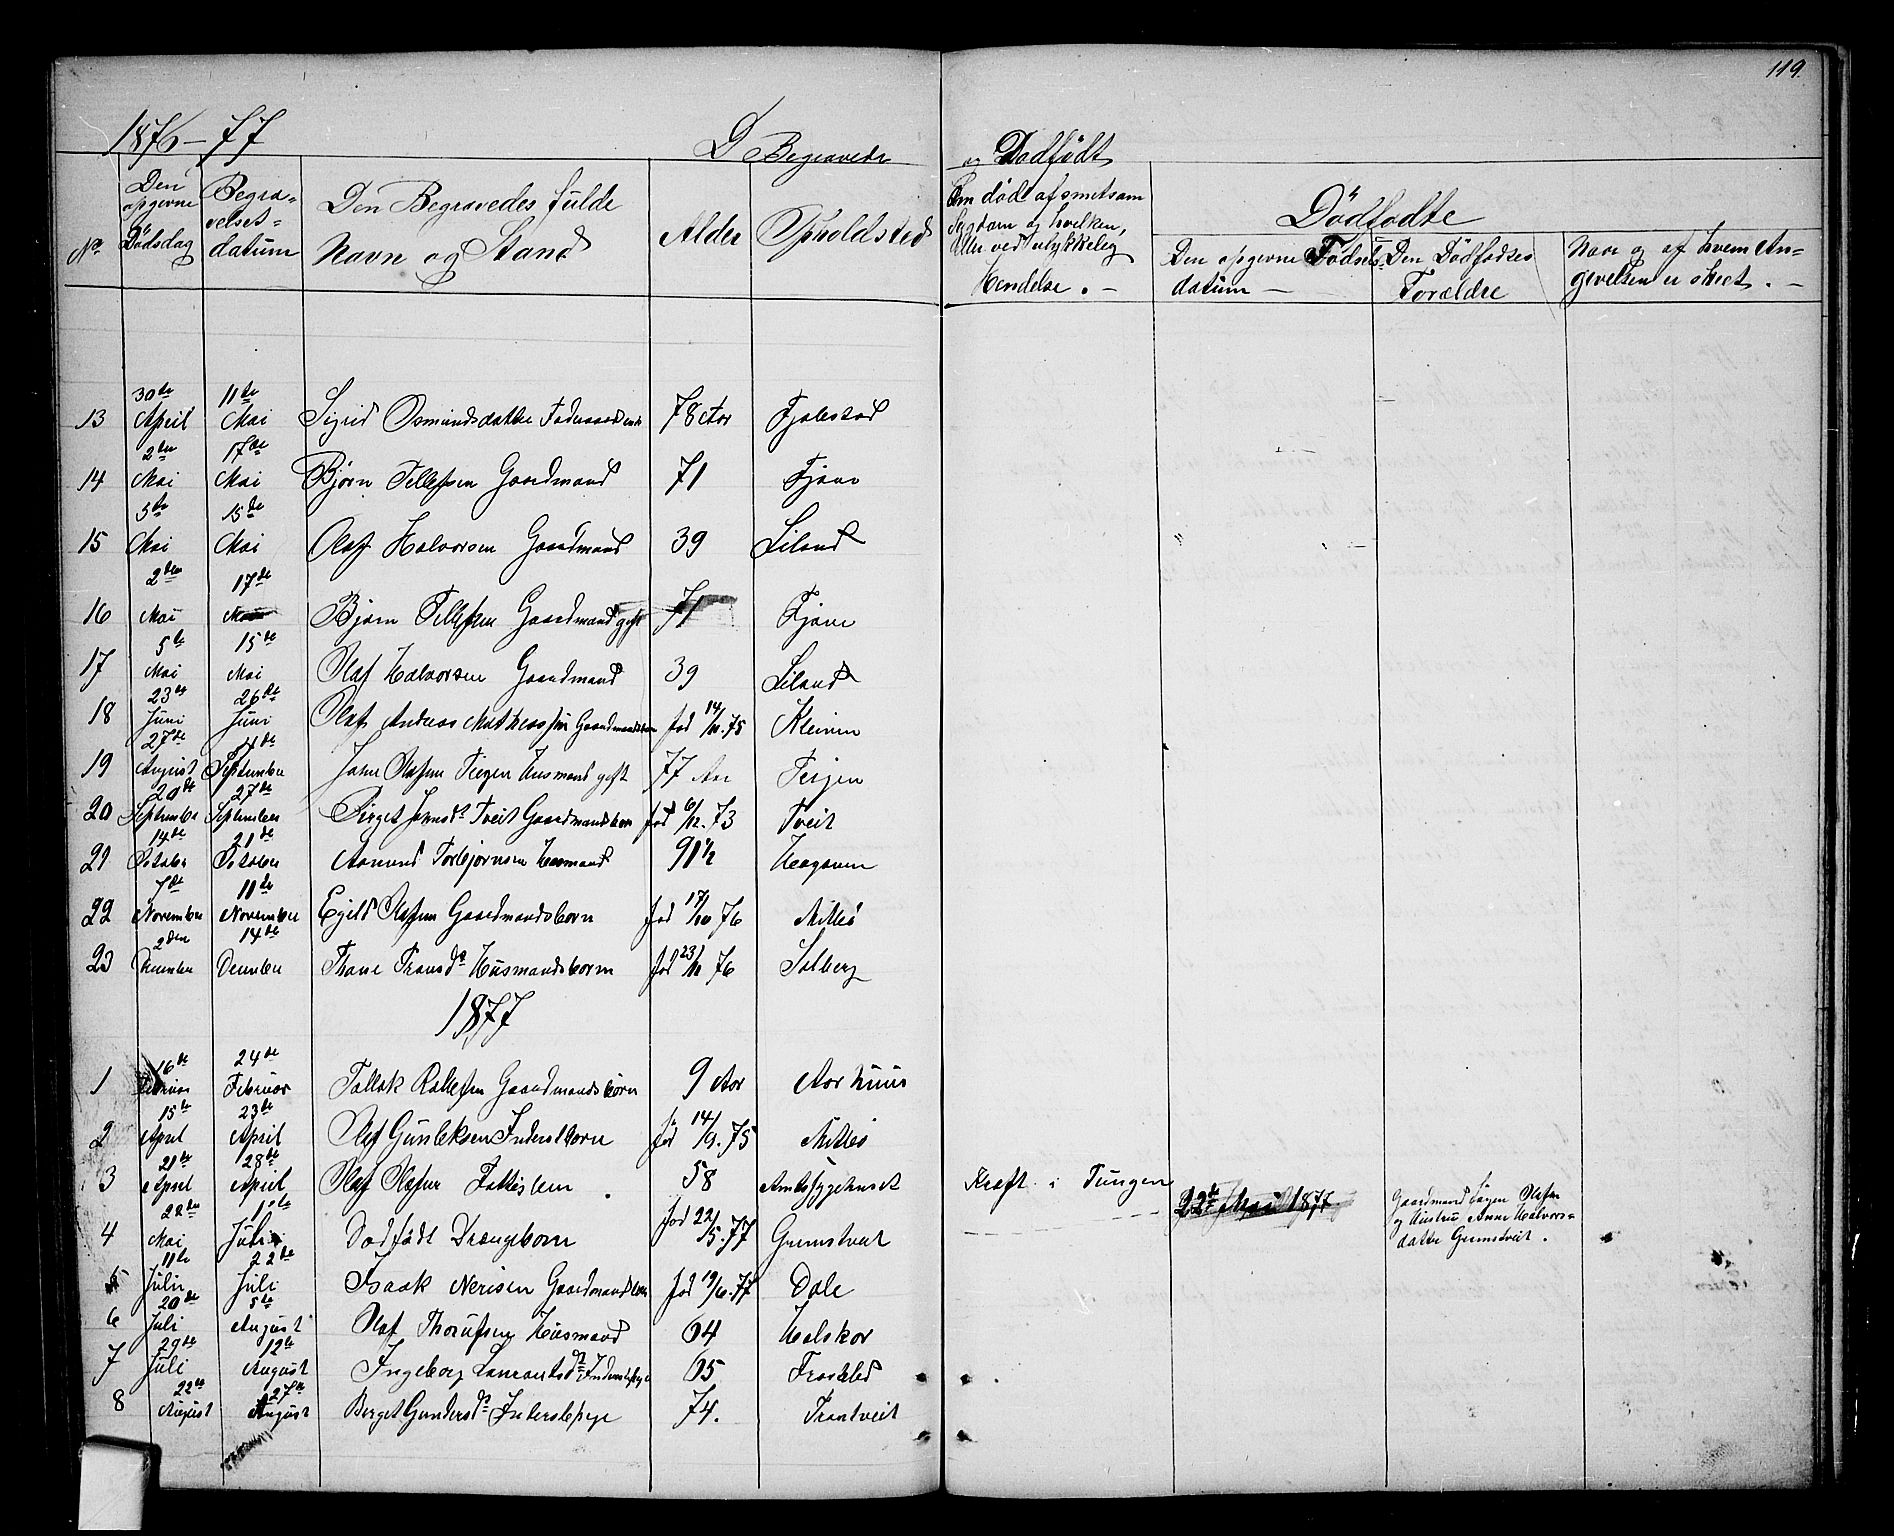 119.
1876-77
D Begravede og Dødfødt
No
Den opgevne Dødsdag
Begravelsesdatum
Den Begravedes fulde Navn og Stand
Alder
Opholdsted
Om død af smetsom Sygdom og hvilken, eller ved ulykkelig Hendelse. -
Dödfodte
Den opgevne Födselsdatum -
Den Dödfødtes Forældre
Naar og af hvem Angivelsen er skeet. -
13 30te April 11te Mai Sigrid Osmundsdatter 78 Aar Fjalestad
14 2den Mai 17de Mai Bjørn Tellefsen Gaardmand 71 Fjone
15 5te Mai 15de Mai Olaf Halvorsen Gaardmand 39 Liland
16 2den Mai 17de Mai Bjørn Tellefsen Gaardmand gift 71 Fjone
17 5te Mai 15de Mai Olaf Halvorsen Gaardmand 39 Liland
18 23de Juni 26de Juni Olaf Andreas Mathiassen Gaardmandsbørn fød 14/11.75 Kleiven
19 27de August 4de September John Olafsen Teigen Husmand gift 77 Aar Teigen
20 20de September 27de September Birget Johnsd. Tveit Gaardmandsbørn fød 6/12.73 Tveit
21 14de October 21de October Aamund Torbjørnsen Husmand 91½ Hagaven
22 7de November 11te November Egild Olafsen Gaardmandsbørn fød 17/10 76 Mittbö
23 2den December 14de December Thone Transd. Husmandsbørn fød 23/11 76 Solberg
1877
1 16de Februar 24de Februar Tallak Rollefsen Gaardmandsbørn 9 Aar Aarhuus
2 15de April 23de April Olaf Gunleksen Inderstbørn fød 14/9.75
3 21de April 28de April Olaf Olafsen Fattiglem 58 Amtssygehuset Kræft i Tungen
4 22de Mai 1ste Juli Dødfødt Drengebarn fød 22/5.77 Grimstveit 22de Mai 1877 Gaardmand Olafsen og Hustru Anne Halvorsdatter Grimstveit.
5 11te Juli 22de Juli Isaak Nerisen Gaardmandsbørn fød 19/6.77 Dale
6 20de Juli 5te August Olaf Husmand 64 Halskor
7 29de Juli 12te August Ingeborg 65
8 22de August 27de August Berget Gundersd. Inderstepige 74. Trontveit